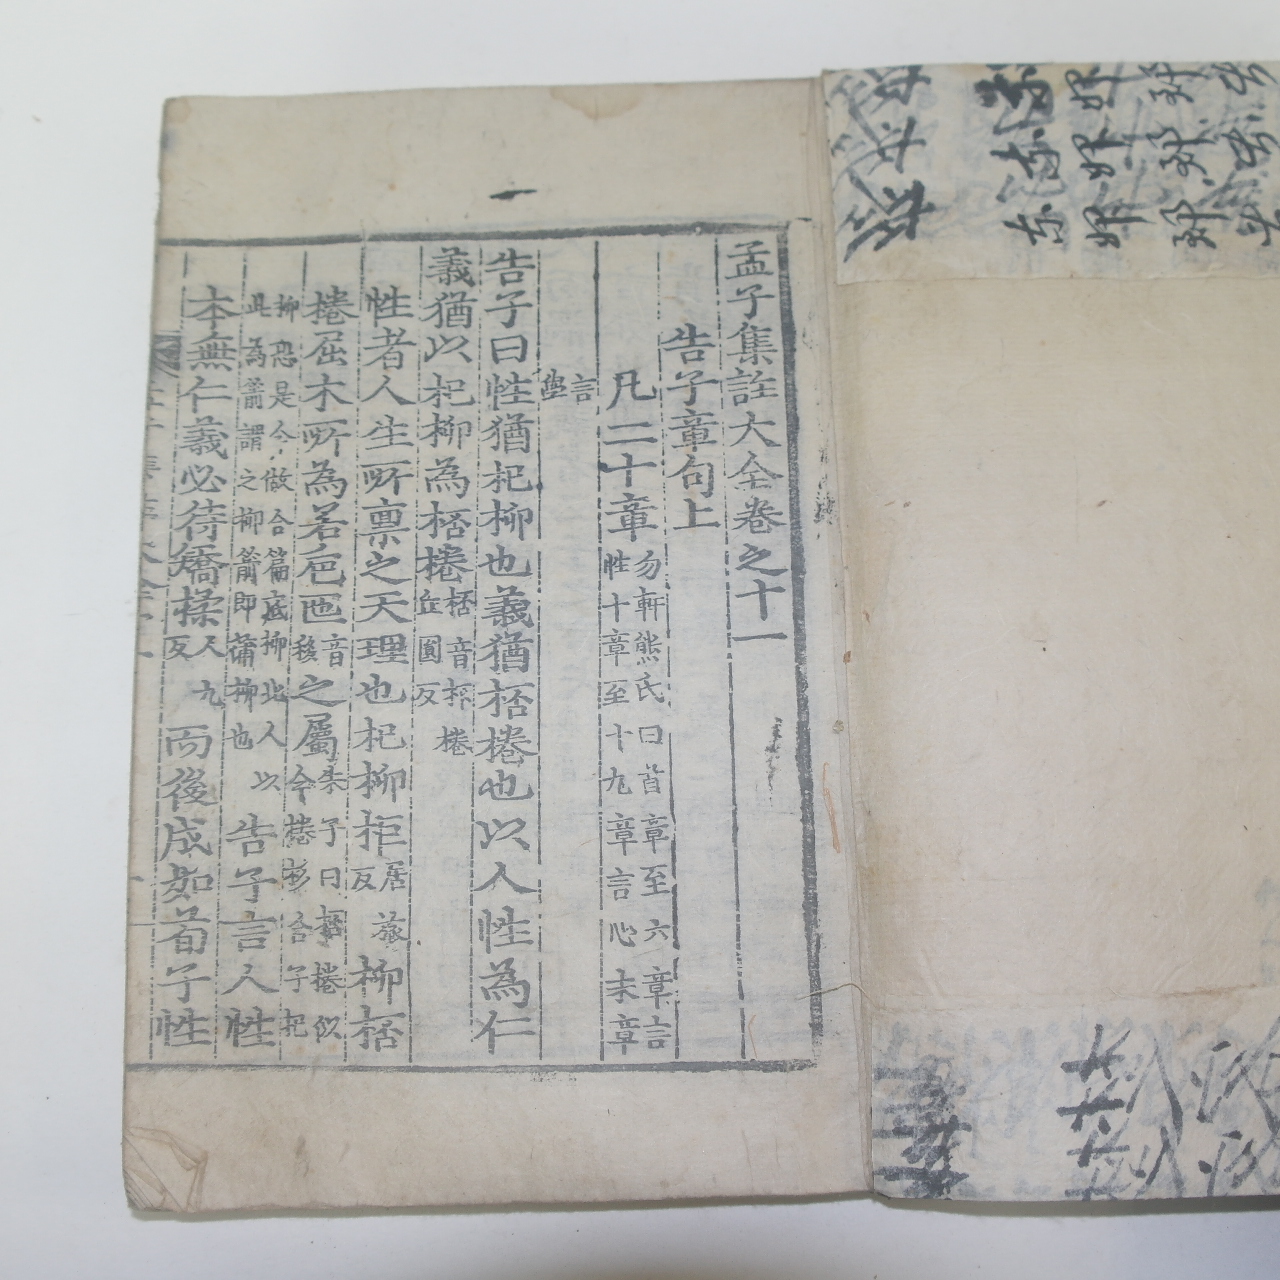 孟子集註大全卷之十一
告子章句上
凡二十章勿軒熊氏曰首章至六章言性十章至十九章言心末章
言學
告子曰性猶杞柳也義猶桮棬也以人性為仁
義猶以杞柳為桮棬桮音杯棬丘圓反
性者人生所禀之天理也杞柳柜居旅反柳桮
棬屈木所為若巵匜音移之属朱子曰桮棬似今棬杉合子杞
柳恐是今做合箱底柳北人以此為箭謂之柳箭即蒲柳也告子言人性
本無仁義必待矯揉人九反而後成如荀子性